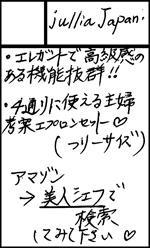 jullia Japan.
・エレガントで高級感の
ある機能抜群!!
・4通りに使える主婦
考案エプロンセット♡
(フリーサイズ)
アマゾン
→美人シェフで
検索
してみて下さい♡